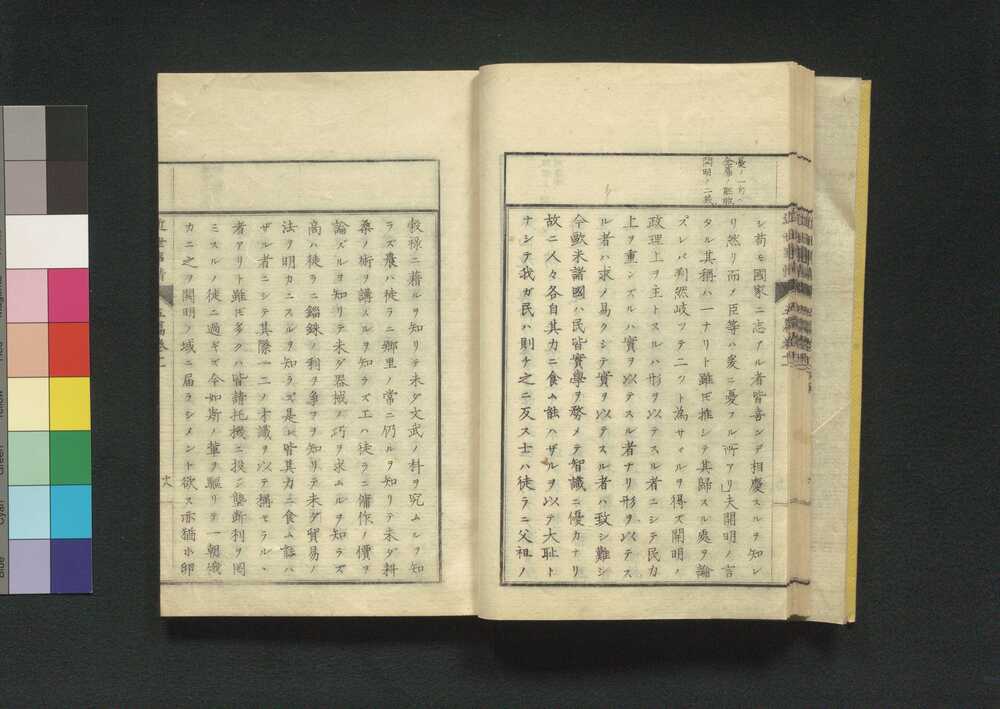 シ苟モ國家ニ志アル者皆喜ンデ相慶スルヲ知レ
リ然リ而ノ臣等ハ窃ニ憂フル所アリ」夫開明ノ言
タル其稱ハ一ナリト雖𪜈推シテ其歸スル處ヲ論
ズレバ判然岐ツテ二ツト為サヾルヲ得ズ開明ノ
政理上ヲ主トスルハ形ヲ以テスル者ニシテ民力
上ヲ重ンズルハ實ヲ以テスル者ナリ形ヲ以テス
ル者ハ求メ易クシテ實ヲ以テスル者ハ致シ難シ
今歐米諸國ハ民皆實學ヲ務メテ智識ニ優カナリ
故ニ人々各自其力ニ食ム能ハザルヲ以テ大耻ト
ナシテ我ガ民ハ則チ之ニ反ス士ハ徒ラニ父祖ノ
開明ノ二歧
穀祿ニ藉ルヲ知リテ未ダ文武ノ科ヲ究ムルヲ知
ラズ農ハ徒ラニ郷里ノ常ニ仍ルヲ知リテ未ダ耕
桑ノ術ヲ講スルヲ知ラズ工ハ徒ラニ傭作ノ價ヲ
論ズルヲ知リテ未ダ器械ノ巧ヲ求ムルヲ知ラズ
商ハ徒ラニ錙銖ノ利ヲ争フヲ知リテ未ダ貿易ノ
法ヲ明カニスルヲ知ラズ是レ皆其力ニ食ム能ハ
ザル者ニシテ其際一二ノ才識ヲ以テ稱セラルヽ
者アリト雖𪜈多クハ皆請托機ニ投シ壟断利ヲ罔
ミスルノ徒ニ過ギズ今如斯ノ輩ヲ驅リテ一朝俄
カニ之ヲ開明ノ域ニ届ラシメント欲ス亦猶ホ卵